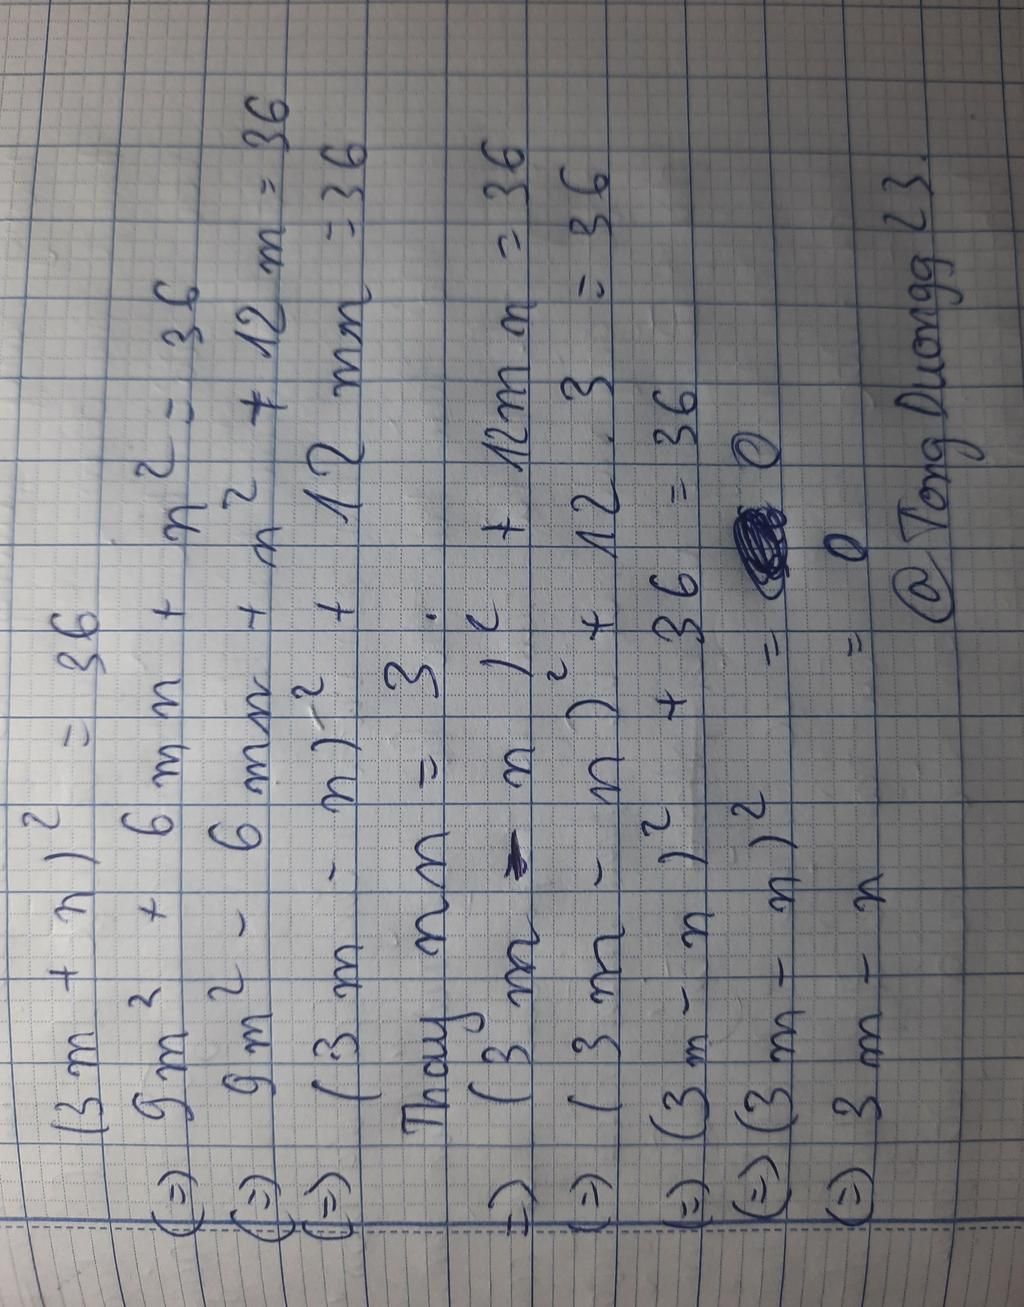 (3m + n)² = 36
(=) 9m² + 6mn + n² = 36
(=) 9m² - 6mn + n² + 12m = 36
(=) (3m - n)² + 12mn = 36
Thay mn = 3.
=) (3m - n)² + 12mn = 36
(=) (3m - n)² + 12.3 = 36
(=) (3m - n)² + 36 = 36
(=) (3m - n)² = 0
(=) 3m - n = 0
@Tong Duongg 23.